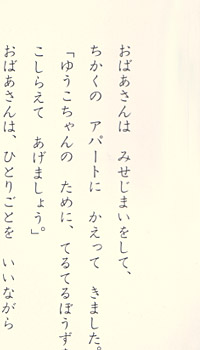 おばあさんは みせじまいをして、
ちかくの アパートに かえって きました。
「ゆうこちゃんの ために、てるてるぼうずを
こしらえて あげましょう。」
おばあさんは、ひとりごとを いいながら